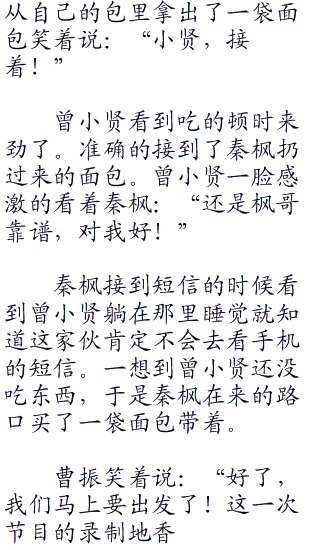 从自己的包里拿出了一袋面
包笑着说：“小贤，接
着！”
曾小贤看到吃的顿时来
劲了。准确的接到了秦枫扔
过来的面包。曾小贤一脸感
激的看着秦枫：“还是枫哥
靠谱，对我好！”
秦枫接到短信的时候看
到曾小贤躺在那里睡觉就知
道这家伙肯定不会去看手机
的短信。一想到曾小贤还没
吃东西，于是秦枫在来的路
口买了一袋面包带着。
曹振笑着说：“好了，
我们马上要出发了！这一次
节目的录制地香